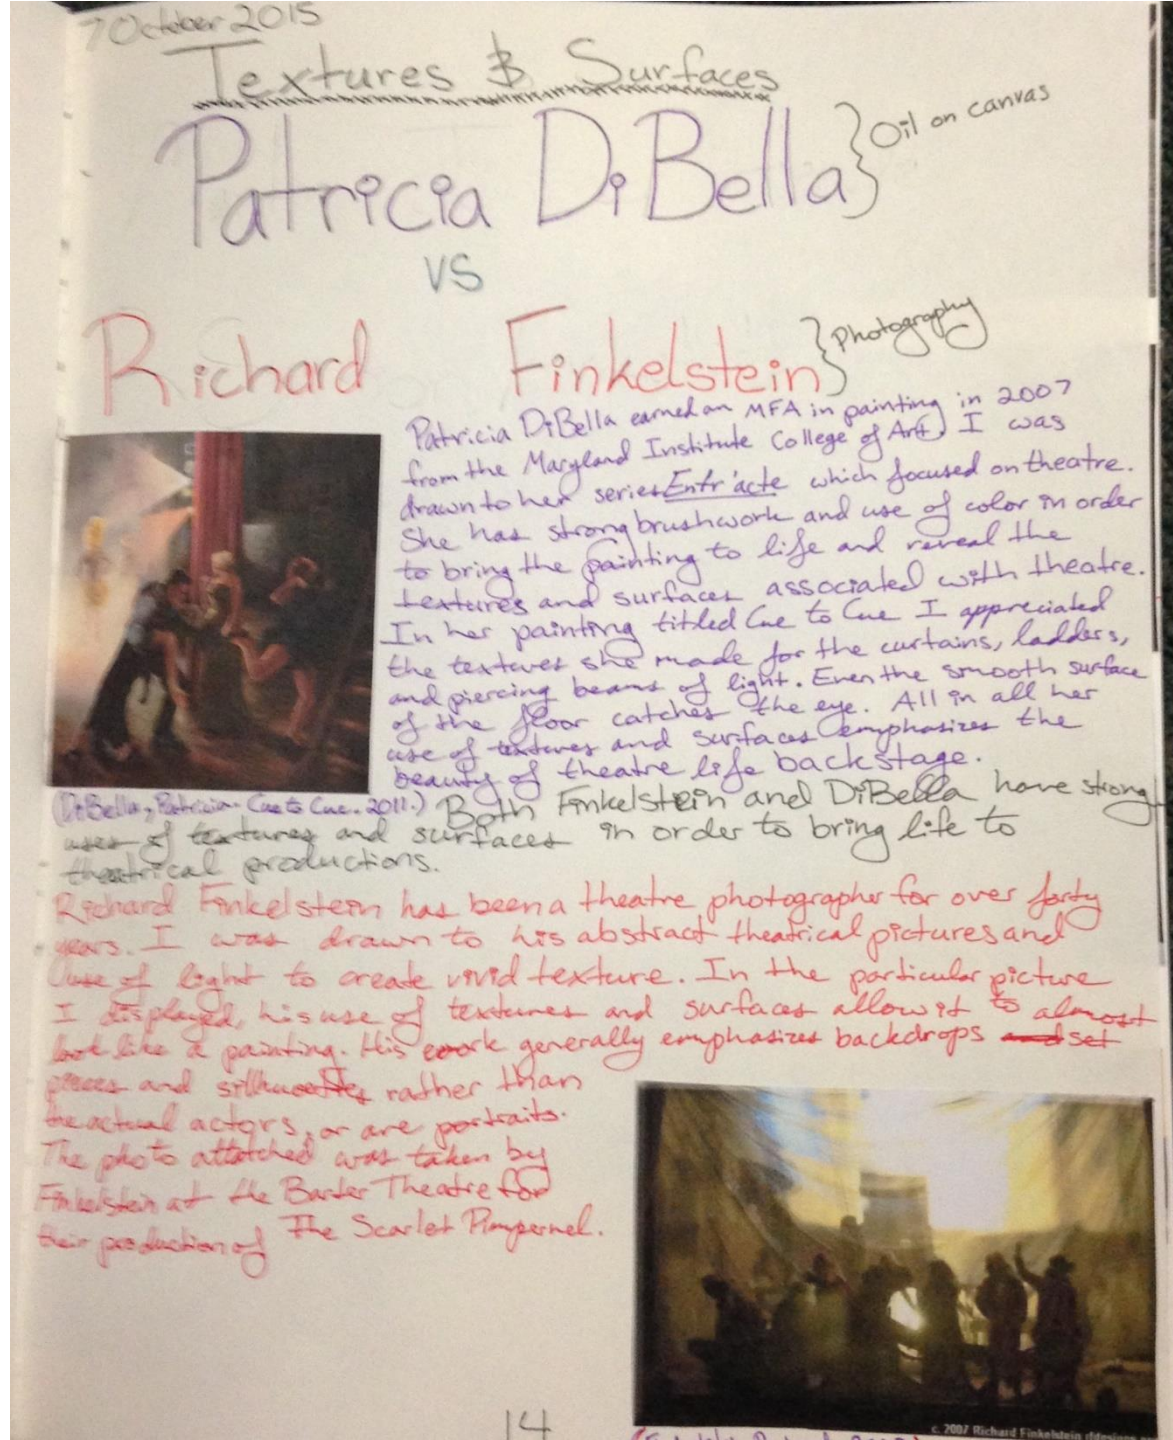 7 October 2015
Textures & Surfaces
Patricia DiBella } Oil on canvas
vs
Richard Finkelstein } Photography
Patricia DiBella earned an MFA in painting in 2007
from the Maryland Institute College of Art. I was
drawn to her series Entr'acte which focused on theatre.
She has strong brushwork and use of color in order
to bring the painting to life and reveal the
textures and surfaces associated with theatre.
In her painting titled Cue to Cue I appreciated
the textures she made for the curtains, ladders,
and piercing beams of light. Even the smooth surface
of the floor catches the eye. All in all her
use of textures and surfaces emphasizes the
beauty of theatre life backstage.
(DiBella, Patricia. Cue to Cue. 2011.)
Both Finkelstein and DiBella have strong
uses of textures and surfaces in order to bring life to
theatrical productions.
Richard Finkelstein has been a theatre photographer for over forty
years. I was drawn to his abstract theatrical pictures and
use of light to create vivid texture. In the particular picture
I displayed, his use of textures and surfaces allow it to almost
look like a painting. His work generally emphasizes backdrops and set
pieces and rather than
the actual actors, or are portraits.
The photo attatched was taken by
Finkelstein at the Barter Theatre for
their production of The Scarlet Pimpernel.
14
c. 2007 Richard Finkelstein